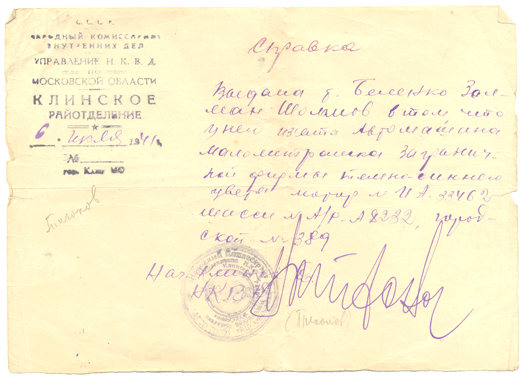 С.С.С.Р.
НАРОДНЫЙ КОМИССАРИАТ
ВНУТРЕННИХ ДЕЛ
УПРАВЛЕНИЕ Н. К. В. Д.
ПО
МОСКОВСКОЙ ОБЛАСТИ
КЛИНСКОЕ
РАЙОТДЕЛЕНИЕ
6 194
№
гор. Клин МО
Справка
Выдана г. Беленко Зал-
ман в том что
у него изъята Автомашина
малолитражка Загранич-
ной фирмы темно-синего
цвета мотор № ИА-22462
шасси № А/Р-А 8232, город-
ской № 389
Нач. Клин
НКВД